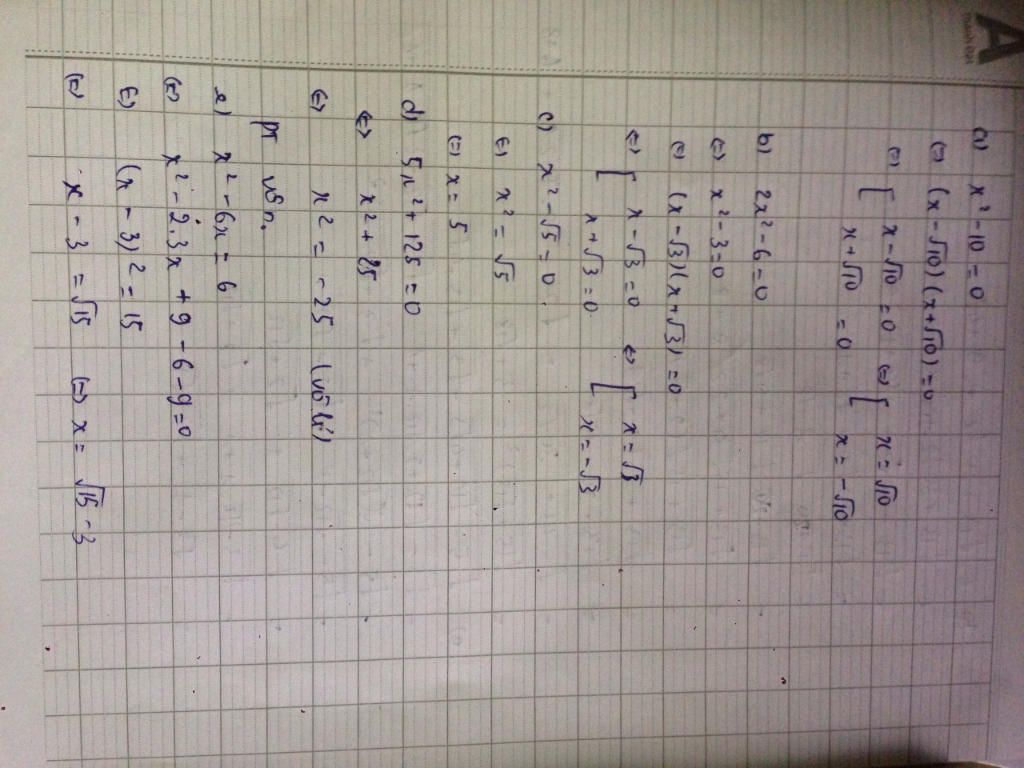 A
a) x² - 10 = 0
(=) (x - √10)(x + √10) = 0
(=) [ x - √10 = 0 (=) [ x = √10
x + √10 = 0 x = -√10
b) 2x² - 6 = 0
(=) x² - 3 = 0
(=) (x - √3)(x + √3) = 0
(=) [ x - √3 = 0 (=) [ x = √3
x + √3 = 0 x = -√3
c) x² - √5 = 0
(=) x² = √5
(=) x = 5
d) 5x² + 125 = 0
(=) x² + 25
(=) x² = -25 (vô lí)
pt vô n.
e) x² - 6x = 6
(=) x² - 2.3x + 9 - 6 - 9 = 0
(=) (x - 3)² = 15
(=) x - 3 = √15 (=) x = √15 - 3